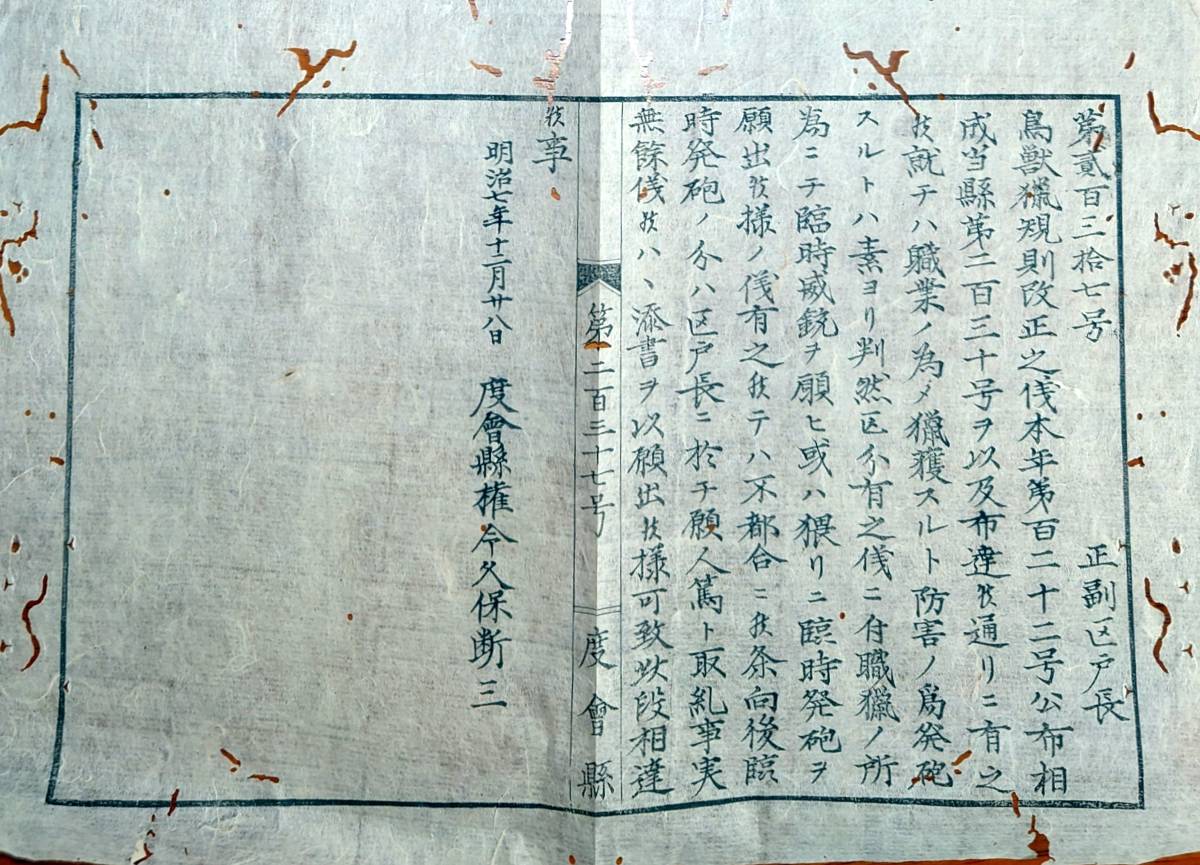 第貳百三拾七号
正副区戸長
鳥獣猟規則改正之儀本年第百二十二号公布相
成当縣第二百三十号ヲ以及布達候通リニ有之
候就テハ職業ノ為メ猟獲スルト防害ノ為発砲
スルトハ素ヨリ判然区分有之儀ニ付職猟ノ所
為ニテ臨時威銃ヲ願ヒ或ハ猥リニ臨時発砲ヲ
願出候様ノ儀有之候テハ不都合ニ候条向後臨
時発砲ノ分ハ区戸長ニ於テ願人篤ト取糺事実
無餘儀候ハヽ添書ヲ以願出候様可致此段相達
候事
第二百三十七号
度會縣
明治七年十二月廿八日
度會縣権令久保断三